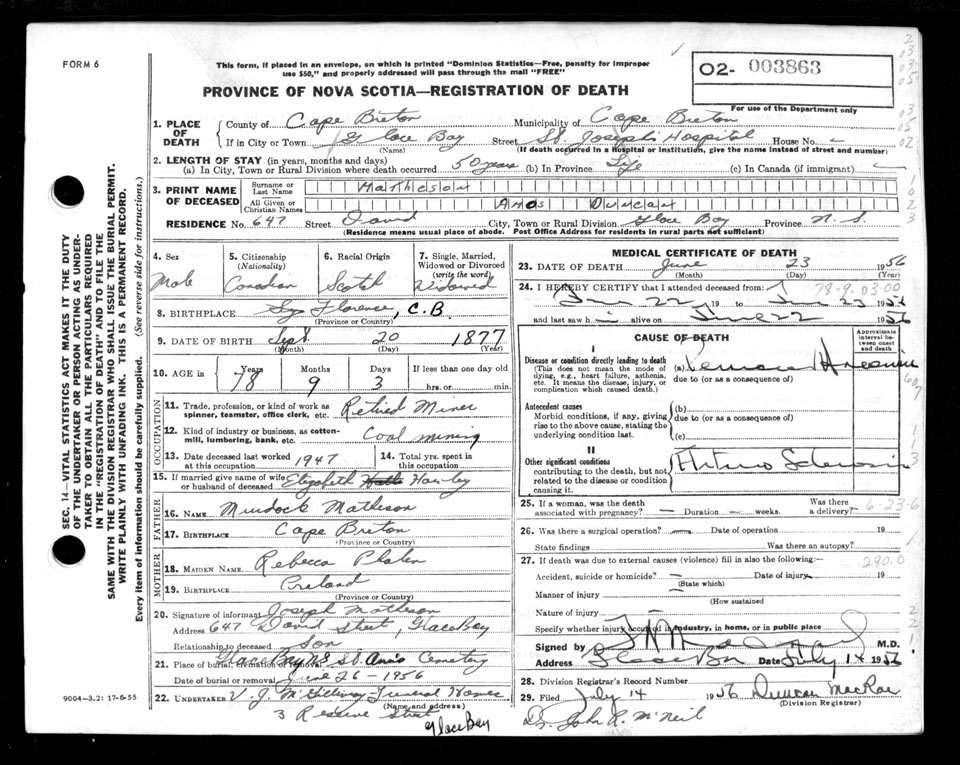 FORM 6
This form, if placed in an envelope, on which is printed "Dominion Statistics—Free, penalty for improper
use $50," and properly addressed will pass through the mail "FREE"
02- 003863
For use of the Department only
PROVINCE OF NOVA SCOTIA—REGISTRATION OF DEATH
1. PLACE OF DEATH
County of Cape Breton Municipality of Cape Breton
If in City or Town Glace Bay Street St Josephs Hospital House No.
(Name) (If death occurred in a hospital or institution, give the name instead of street and number)
2. LENGTH OF STAY (in years, months and days)
(a) In City, Town or Rural Division where death occurred 50 years (b) In Province Life (c) In Canada (if immigrant) —
3. PRINT NAME OF DECEASED
Surname or Last Name Matheson
All Given or Christian Names Amos Duncan
RESIDENCE No. 647 Street David City, Town or Rural Division Glace Bay Province N. S.
(Residence means usual place of abode. Post Office Address for residents in rural parts not sufficient)
4. Sex Male
5. Citizenship (Nationality) Canadian
6. Racial Origin Scotch
7. Single, Married, Widowed or Divorced (write the word) Widowed
8. BIRTHPLACE Florence, C.B.
(Province or Country)
9. DATE OF BIRTH Sept 20 1877
(Month) (Day) (Year)
10. AGE in Years 78 Months 9 Days 3 If less than one day old hrs. or min.
OCCUPATION
11. Trade, profession, or kind of work as spinner, teamster, office clerk, etc. Retired Miner
12. Kind of industry or business, as cotton-mill, lumbering, bank, etc. Coal mining
13. Date deceased last worked at this occupation 1947
14. Total yrs. spent in this occupation
15. If married give name of wife or husband of deceased Elizabeth Hawley
FATHER
16. NAME Murdock Matheson
17. BIRTHPLACE Cape Breton
(Province or Country)
MOTHER
18. MAIDEN NAME Rebecca
19. BIRTHPLACE
(Province or Country)
20. Signature of informant Joseph Matheson
Address 647 David Street, Glace Bay
Relationship to deceased Son
21. Place of burial, cremation or removal Glace Bay NS St. Ann's Cemetery
Date of burial or removal June 26 - 1956
22. UNDERTAKER V. J. McGillivray Funeral Homes
(Name and address)
3 Reserve Street
Glace Bay
MEDICAL CERTIFICATE OF DEATH
23. DATE OF DEATH June 23 1956
(Month) (Day) (Year)
24. I HEREBY CERTIFY that I attended deceased from:
78-9. 03.00
June 22 19 to June 23 1956
and last saw h alive on June 22 1956
CAUSE OF DEATH
Approximate interval between onset and death
I
Disease or condition directly leading to death
(This does not mean the mode of dying, e.g., heart failure, asthenia, etc. It means the disease, injury, or complication which caused death.)
(a)
due to (or as a consequence of)
Antecedent causes
Morbid conditions, if any, giving rise to the above cause, stating the underlying condition last.
(b)
due to (or as a consequence of)
(c)
II
Other significant conditions
contributing to the death, but not related to the disease or condition causing it.
Arterio Sclerosis
25. If a woman, was the death associated with pregnancy? — Duration — weeks. Was there a delivery?
6-23-6
26. Was there a surgical operation? — Date of operation 19
State findings Was there an autopsy?
27. If death was due to external causes (violence) fill in also the following:—
290.0
Accident, suicide or homicide? — Date of injury 19
(State which)
Manner of injury —
(How sustained
Nature of injury
Specify whether injury occurred in industry, in home, or in public place
Signed by M.D.
Address Glace Bay Date July 14 1956
28. Division Registrar's Record Number
29. Filed July 14 1956 Duncan MacRae
(Division Registrar)
Dr. John R. McNeil
9004-3.2: 17-6-55
SEC. 14—VITAL STATISTICS ACT MAKES IT THE DUTY
OF THE UNDERTAKER OR PERSON ACTING AS UNDER-
TAKER TO OBTAIN ALL THE PARTICULARS REQUIRED
IN THE "REGISTRATION OF DEATH" AND TO FILE THE
SAME WITH THE DIVISION REGISTRAR WHO SHALL ISSUE THE BURIAL PERMIT.
WRITE PLAINLY WITH UNFADING INK. THIS IS A PERMANENT RECORD.
Every item of information should be carefully supplied. (See reverse side for instructions.)